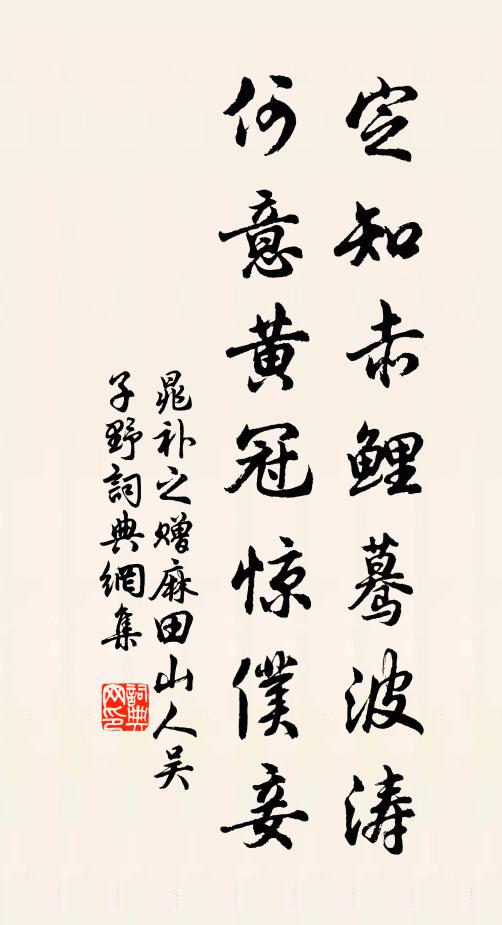 定知赤鲤蓦波涛
何意黄冠惊僕妾
晁补之赠麻田山人吴
子野詞典網集
詞典网印